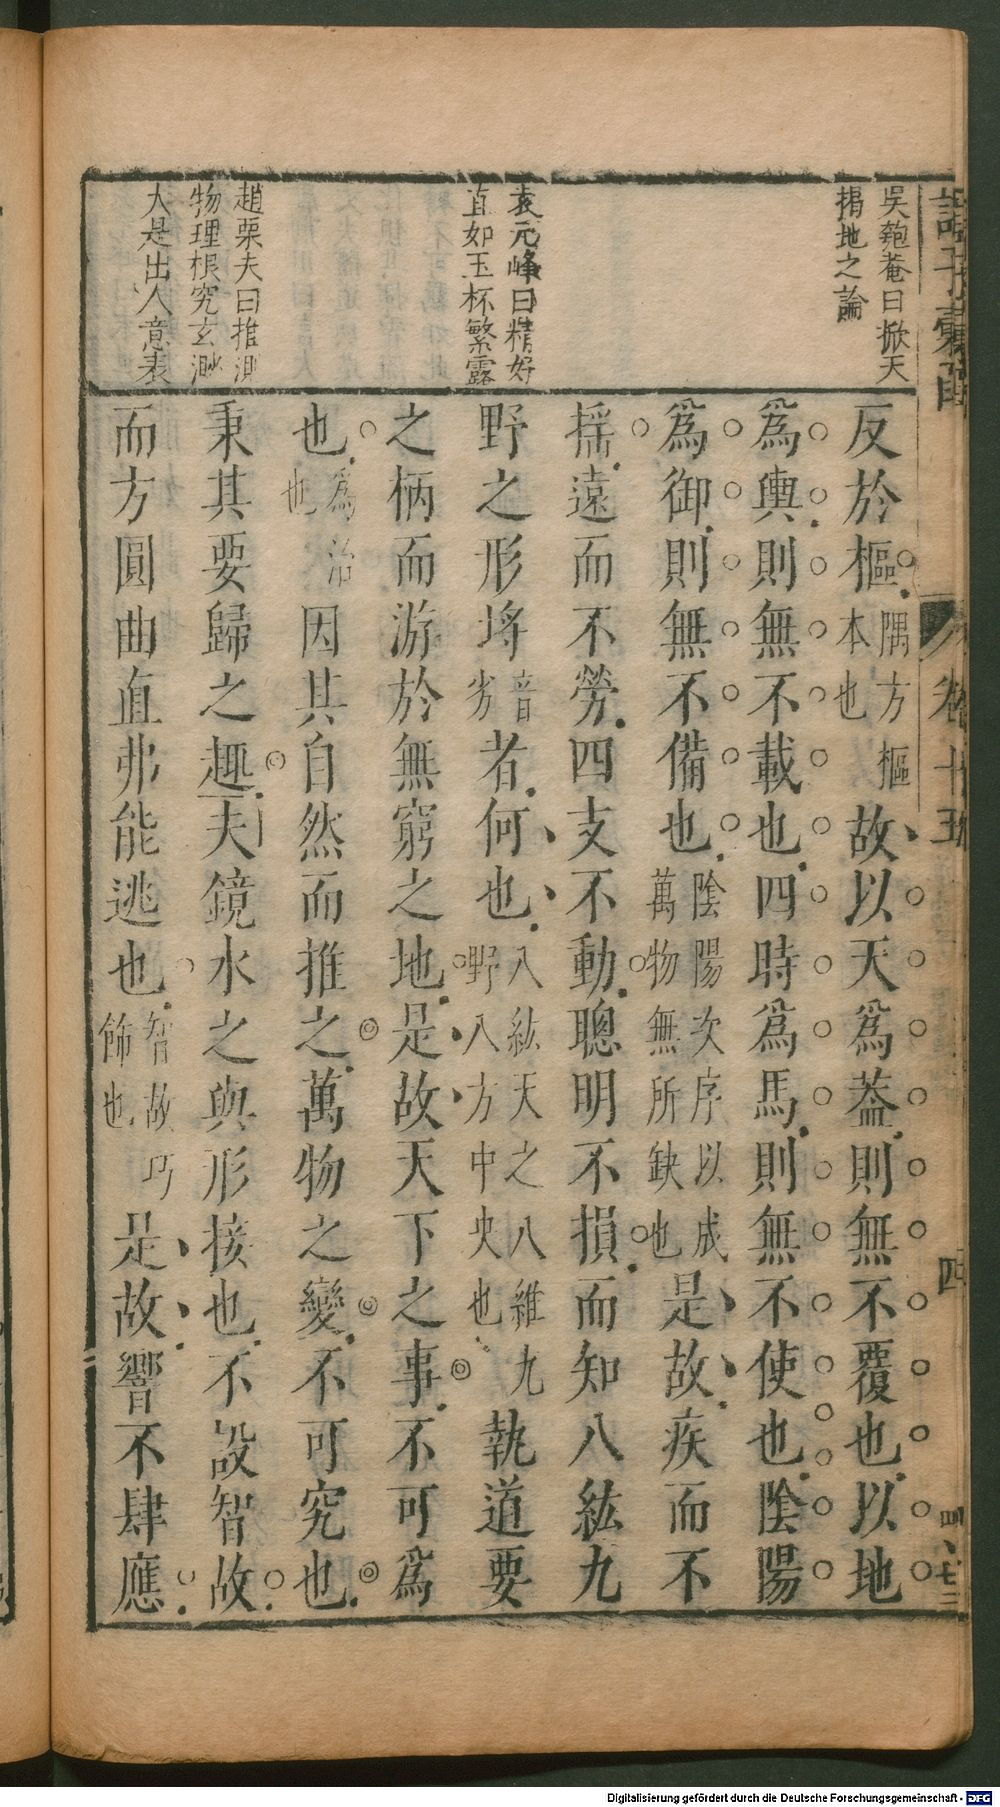 吳匏菴曰掀天
揭地之論
袁元峰曰精好
直如玉杯繁露
趙栗夫曰推測
物理根究玄渺
大是出人意表
反於樞隅方樞本也故以天爲葢則無不覆也以地
爲輿則無不載也四時爲馬則無不使也陰陽
爲御則無不備也陰陽次序以成萬物無所缺也是故疾而不
揺遠而不勞四支不動聰明不損而知八紘九
野之形埓音劣者何也八紘天之八維九野八方中央也執道要
之柄而游於無窮之地是故天下之事不可爲
也爲治也因其自然而推之萬物之變不可究也
秉其要歸之趣夫鏡水之與形接也不設智故
而方圓曲直弗能逃也智故巧飾也是故響不肆應
卷十五
四
Digitalisierung gefördert durch die Deutsche Forschungsgemeinschaft - DFG